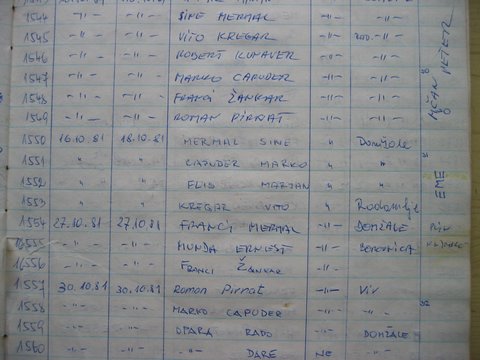 1544 -"- -"- SINE MERMAL -"- -"-
1545 -"- -"- VITO KREGAR -"- -"-
1546 -"- -"- ROBERT KUHAVER -"- -"-
1547 -"- -"- MARKO CAPUDER -"- -"-
1548 -"- -"- FRANCI ŽANKAR -"- -"-
1549 -"- -"- ROMAN PIRNAT -"- -"-
1550 16.10.81 18.10.81 MERMAL SINE " Domžale
1551 " " CAPUDER MARKO " "
1552 " " FLIS MARJAN " "
1553 " " KREGAR VITO " Radomlje
1554 27.10.81 27.10.81 FRANCI MERMAL -"- DOMŽALE
1555 -"- -"- MUNDA ERNEST -"-
1556 -"- -"- FRANCI ŽANKAR -"-
1557 30.10.81 30.10.81 Roman Pirnat -"- Vir
1558 -"- -"- MARKO CAPUDER -"-
1559 -"- -"- OPARA RADO -"- DOMŽALE
1560 -"- -"- -"- DARE NE -"-
EME